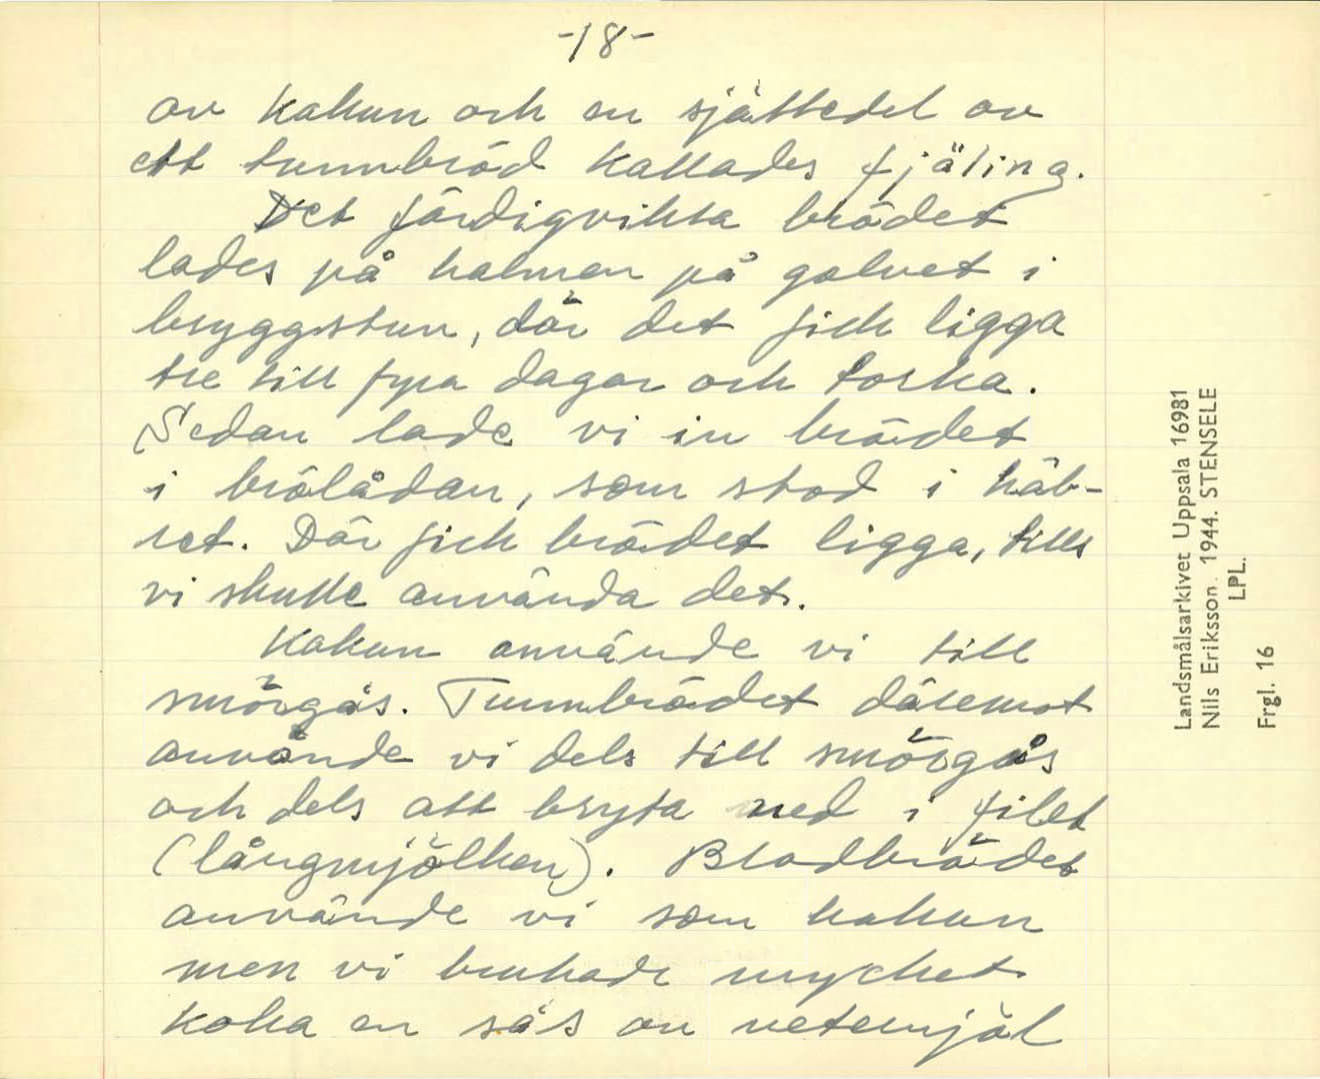 -18-
av kakun och en sjättedel av
ett tunnbröd kallades fjäling.
Det färdigvikta brödet
lades på halmen på golvet i
bryggstun, där det fick ligga
tre till fyra dagar och torka.
Sedan lade vi in brödet
i brölådan, som stod i häb-
ret. Där fick brödet ligga, tills
vi skulle använda det.
Kakun använde vi till
smörgås. Tunnbrödet däremot
använde vi dels till smörgås
och dels att bryta ned i filet
(långmjölken). Bladbrödet
använde vi som kakun
men vi brukade mycket
koka en sås av vetemjöl
Landsmålsarkivet Uppsala 16981
Nils Eriksson. 1944. STENSELE
LPL.
Frgl. 16